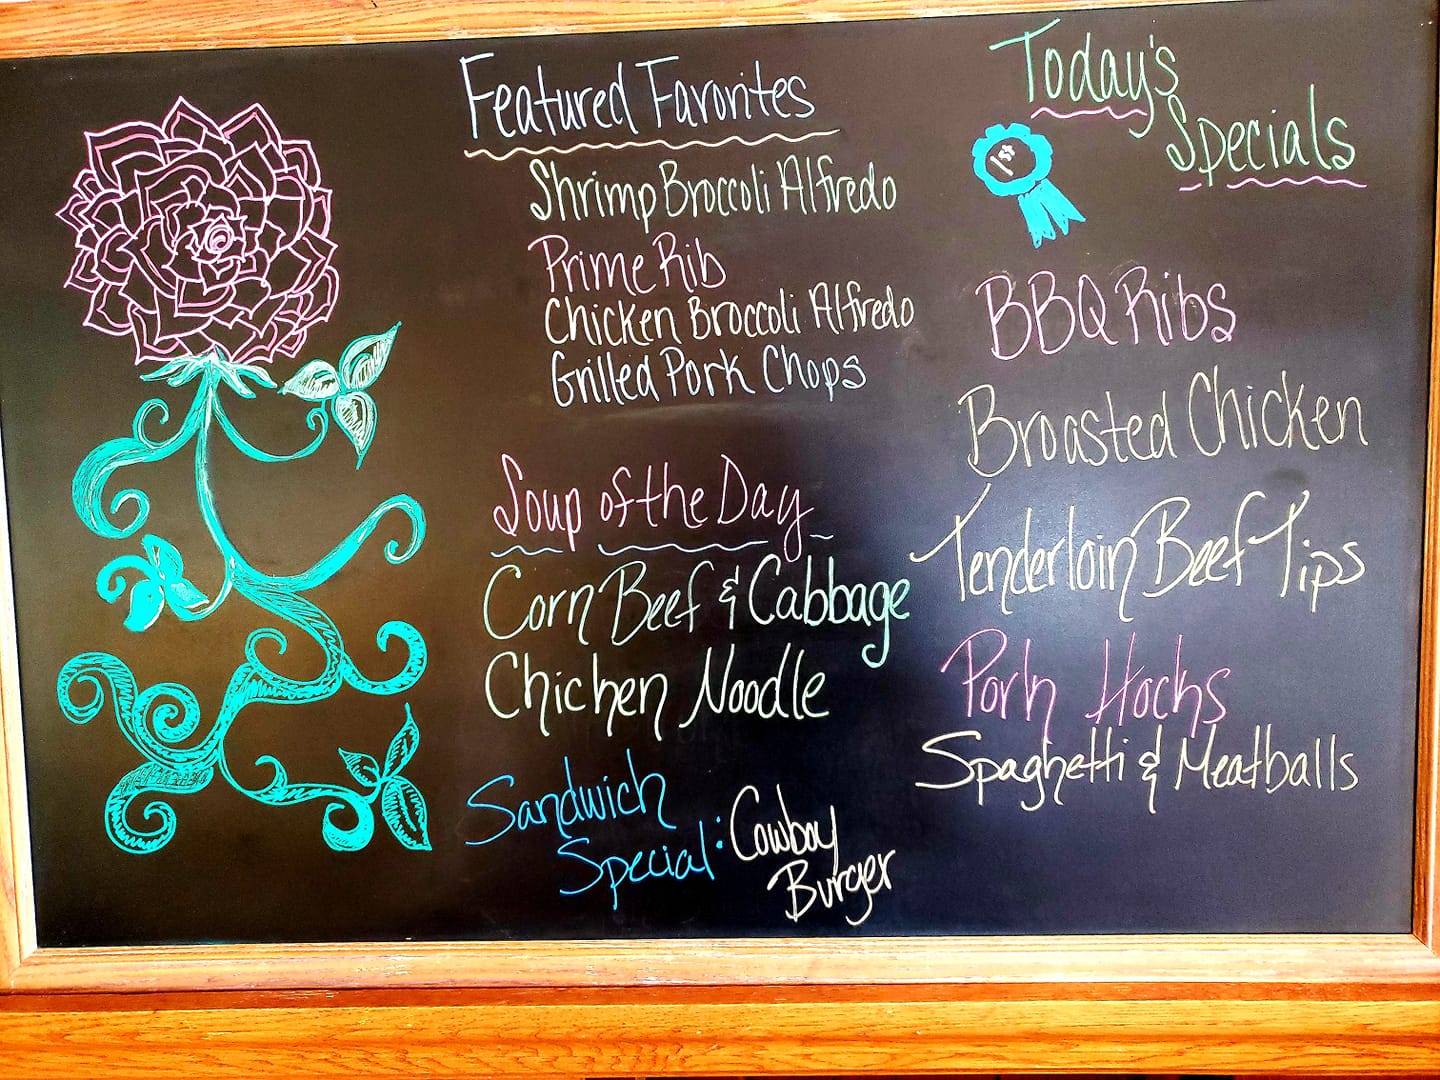 Featured Favorites
Shrimp Broccoli Alfredo
Prime Rib
Chicken Broccoli Alfredo
Grilled Pork Chops
Soup of the Day
Corn Beef & Cabbage
Chicken Noodle
Sandwich
Special: Cowboy
Burger
Today's
Specials
1st
BBQ Ribs
Broasted Chicken
Tenderloin Beef Tips
Pork Hocks
Spaghetti & Meatballs